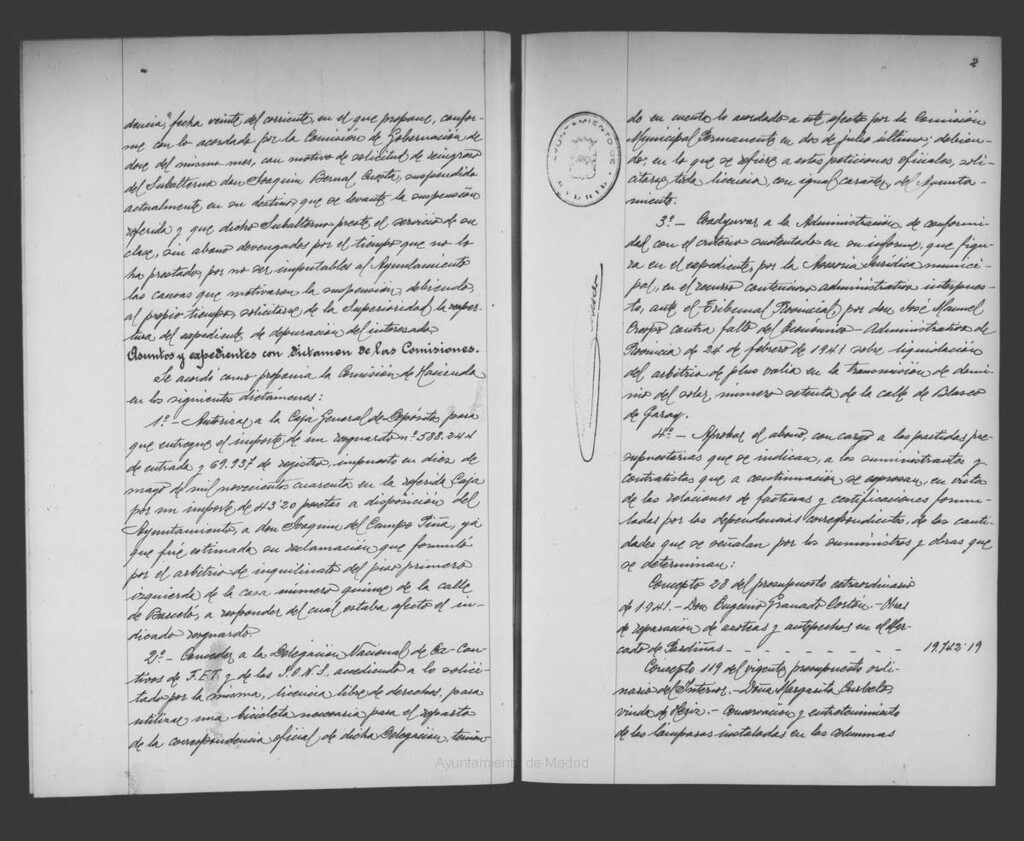 dencia, fecha veinte del corriente, en el que propone, confor-
me con lo acordado por la Comisión de Gobernación, de
doce del mismo mes, con motivo de solicitud de reingreso
del Subalterno don Joaquín Bernal suspendido
actualmente en su destino que se levante la suspensión
referida y que dicho Subalterno preste el servicio de su
clase, sin abono devengados por el tiempo que no lo
ha prestado, por no ser imputables al Ayuntamiento
las causas que motivaron la suspensión, debiendo
al propio tiempo solicitarse de la Superioridad la reaper-
tura del expediente de depuración del interesado.
Asuntos y expedientes con dictamen de las Comisiones.
Se acordó como proponía la Comisión de Hacienda
en los siguientes dictámenes:
1º.- Autorizar a la Caja General de Depósitos para
que entregue el importe de un resguardo nº 588.244
de entrada y 69.937 de registro, impuesto en diez de
mayo de mil novecientos cuarenta en la referida Caja
por un importe de 43'20 pesetas a disposición del
Ayuntamiento, a don Joaquín del Campo Piña, ya
que fué estimada su reclamación que formuló
por el arbitrio de inquilinato del piso primero
izquierda de la casa número quince de la calle
de Barceló, a responder del cual estaba afecto el in-
dicado resguardo.
2º.- Conceder a la Delegación Nacional de Ex-Cau-
tivos de F.E.T. y de las J.O.N.S., accediendo a lo solici-
tado por la misma, licencia libre de derechos, para
utilizar una bicicleta necesaria para el reparto
de la correspondencia oficial de dicha Delegación, tenien-
Ayuntamiento de Madrid
2
AYUNTAMIENTO DE MADRID
do en cuenta lo acordado a este efecto por la Comisión
Municipal Permanente en dos de julio último; debien-
do, en lo que se refiere a estas peticiones oficiales, soli-
citarse toda licencia, con igual carácter, del Ayunta-
miento.
3º.- Coadyuvar a la Administración, de conformi-
dad con el criterio sustentado en su informe, que figu-
ra en el expediente, por la Asesoría Jurídica munici-
pal, en el recurso contencioso administrativo interpues-
to, ante el Tribunal Provincial, por don José Manuel
Crespo contra fallo del Económico-Administrativo de
Provincia de 24 de febrero de 1941 sobre liquidación
del arbitrio de plus valía en la transmisión de domi-
nio del solar número setenta de la calle de Blasco
de Garay.
4º.- Aprobar el abono, con cargo a las partidas pre-
supuestarias que se indican, a los suministrantes y
contratistas que a continuación se expresan, en vista
de las relaciones de facturas y certificaciones formu-
ladas por las dependencias correspondientes, de las canti-
dades que se señalan por los suministros y obras que
se determinan:
Concepto 28 del presupuesto extraordinario
de 1941.- Don Eugenio Granado Costón.- Obras
de reparación de azoteas y antepechos en el Mer-
cado de Pardiñas - - - - - - - - - 19.742'19
Concepto 119 del vigente presupuesto ordi-
nario del Interior.- Doña Margarita
viuda de - Conservación y entretenimiento
de las lámparas instaladas en las columnas